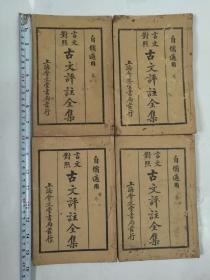 自修適用
言文對照
古文評註全集
上海會文堂書局發行
自修適用
言文對照
古文評註全集
上海會文堂書局發行
自修適用
言文對照
古文評註全集
上海會文堂書局發行
自修適用
言文對照
古文評註全集
上海會文堂書局發行